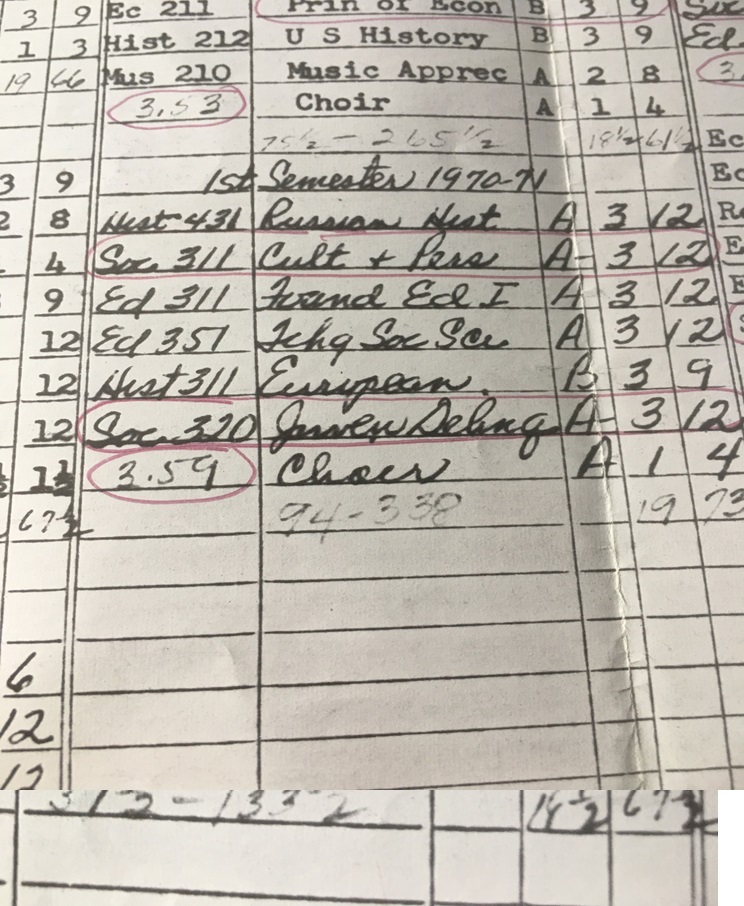 3 9 Ec 211 Prin of Econ B 3 9
1 3 Hist 212 U S History B 3 9 Ed.
19 66 Mus 210 Music Apprec A 2 8 3.
3.53 Choir A 1 4
75½ - 265½ 18½ 61½ Ec
3 9 1st Semester 1970-71 Ec
2 8 Hist 431 Russian Hist A 3 12
4 Soc 311 Cult + Pers A- 3 12 E
9 Ed 311 Found Ed I A- 3 12 E
12 Ed 351 Tchg Soc Sci A 3 12
12 Hist 311 European B 3 9
12 Soc 320 Juven Delinq A- 3 12
1½ 3.59 Choir A 1 4
67½ 94-338 19 73
6
12
12